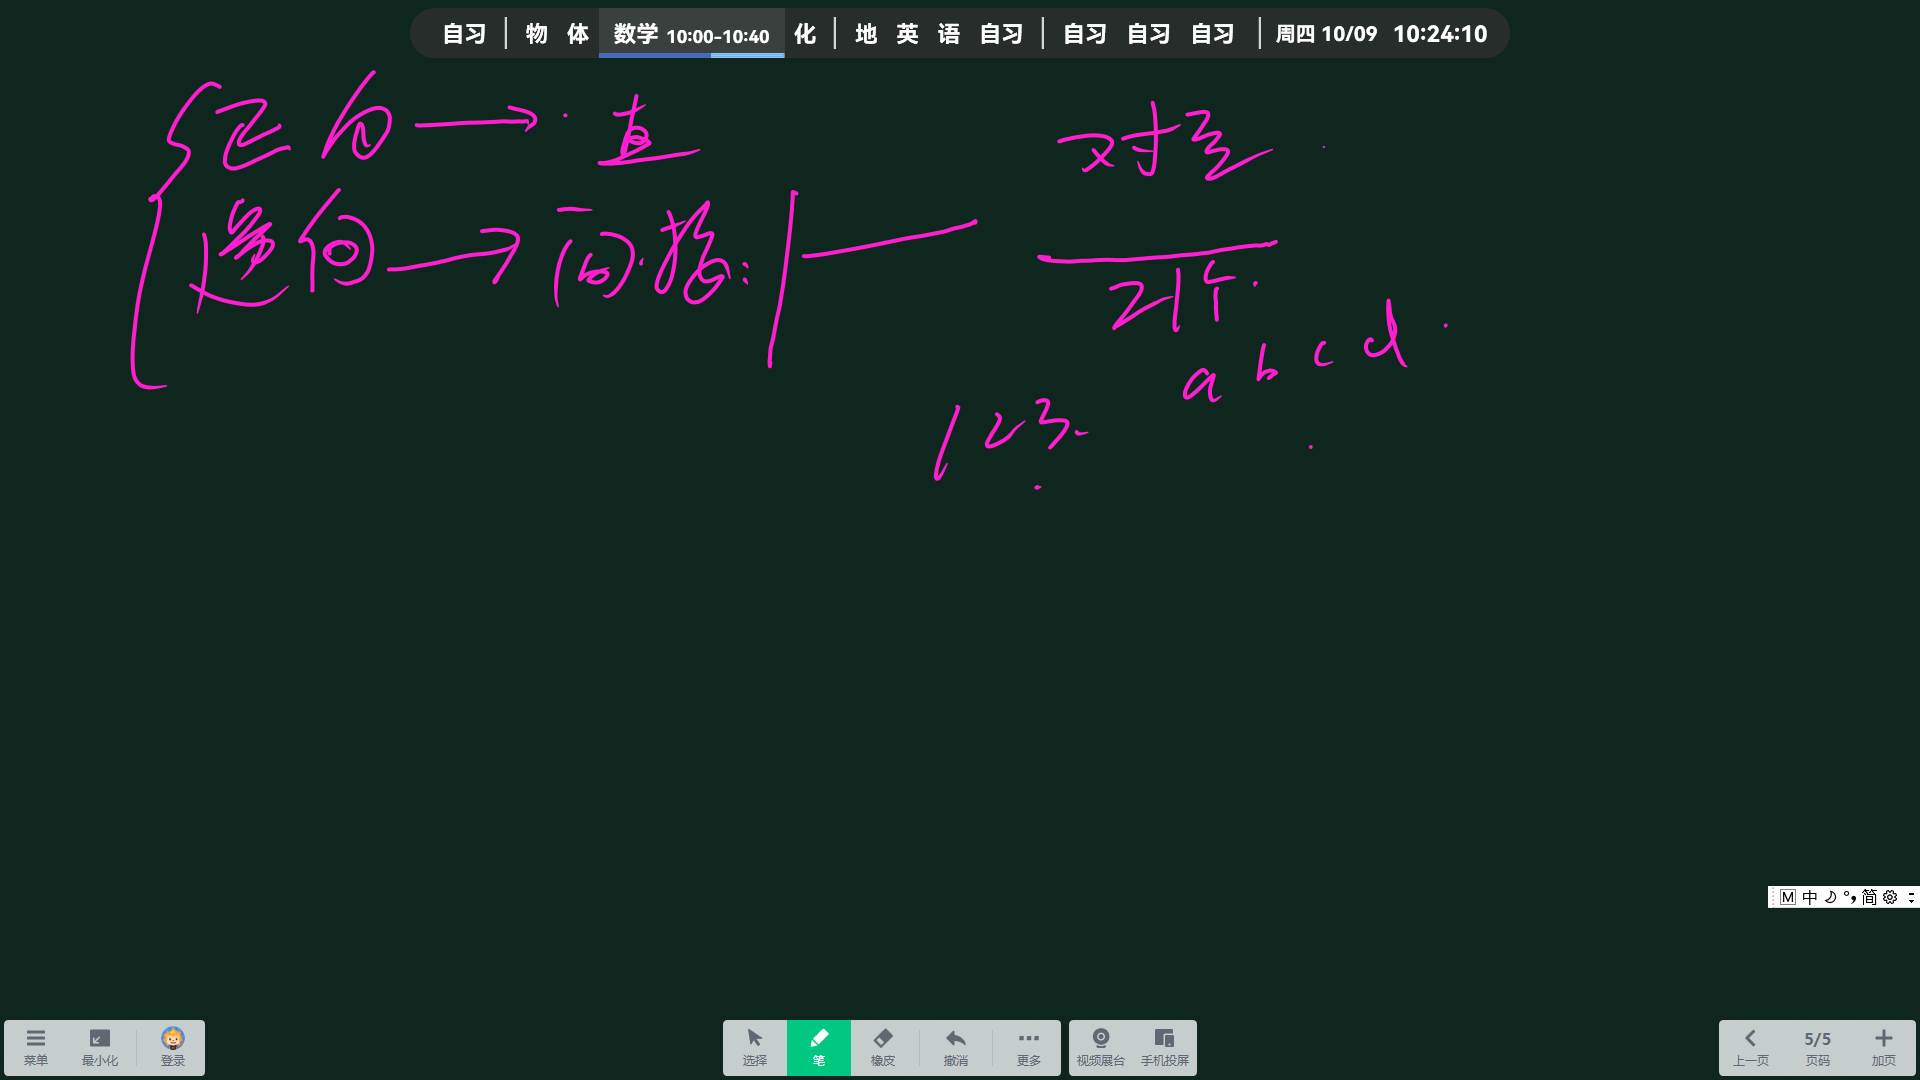 自习 | 物 体 数学 10:00-10:40 化 | 地 英 语 自习 | 自习 自习 自习 | 周四 10/09 10:24:10
正向 → 直
逆向 → 间接:
对
21个
a b c d
1 2 3
M 中 简
菜单 最小化 登录
选择 笔 橡皮 撤消 更多
视频展台 手机投屏
上一页 5/5 页码 加页